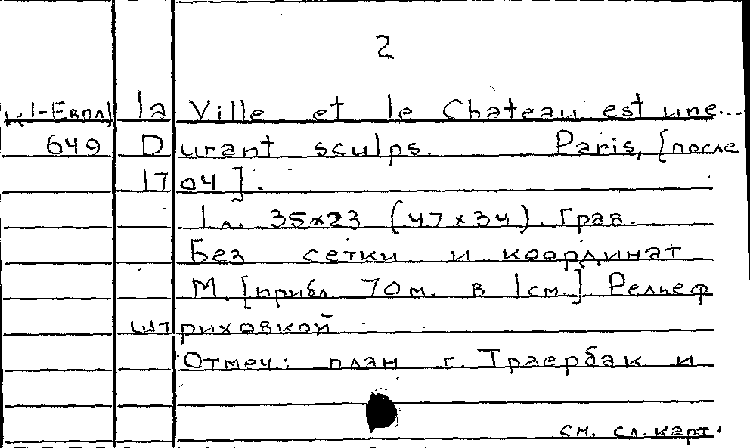 2
К 1-Евпл la Ville et le Chateau est une...
649 Durant sculps. Paris, [после
1704].
1 л. 35x23 (47x34). Грав.
Без сетки и координат
М. [прибл 70 м. в 1см.] Рельеф
штриховкой
Отмеч: план г. Траербак и
см. сл. карт.